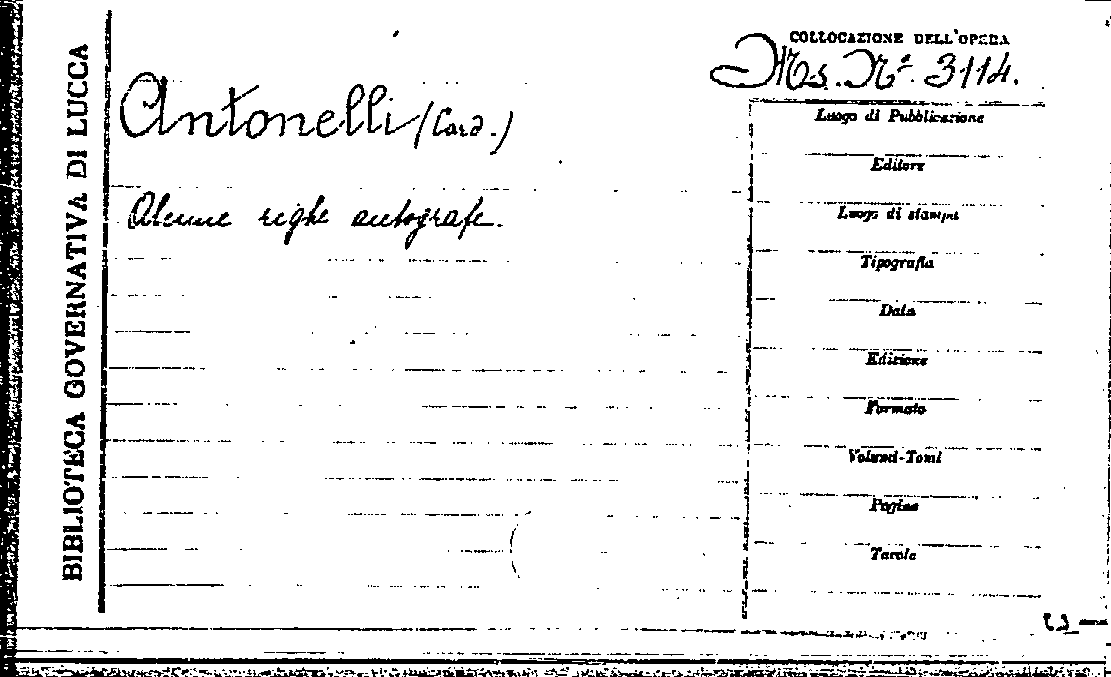 BIBLIOTECA GOVERNATIVA DI LUCCA
COLLOCAZIONE DELL'OPERA
Ms. Nº. 3114.
Antonelli (Card.)
Alcune righe autografe.
Luogo di Pubblicazione
Editore
Luogo di stampa
Tipografia
Data
Edizione
Formato
Volumi-Tomi
Pagine
Tavole